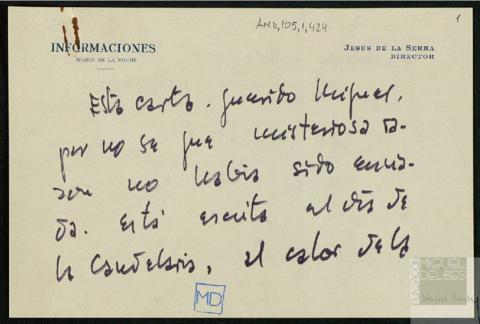 AMD,105,1,424
1
INFORMACIONES
DIARIO DE LA NOCHE
JESÚS DE LA SERNA
DIRECTOR
Esta carta, querido Miguel,
por no se que misteriosa ra-
zon no habia sido envia-
da. Está escrita el día de
la Candelaria, al calor de la
MD
FUNDACIÓN
MIGUEL
DELIBES